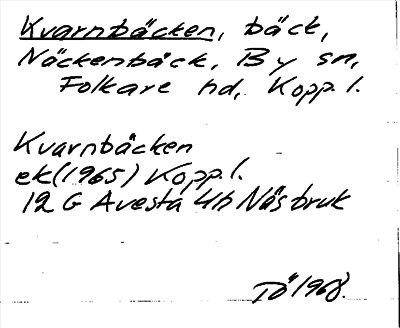 Kvarnbäcken, bäck,
Näckenbäck, By sn,
Folkare hd, Kopp. l.
Kvarnbäcken
ek (1965) Kopp. l.
12 G Avesta 4h Näsbruk
Dö 1968.